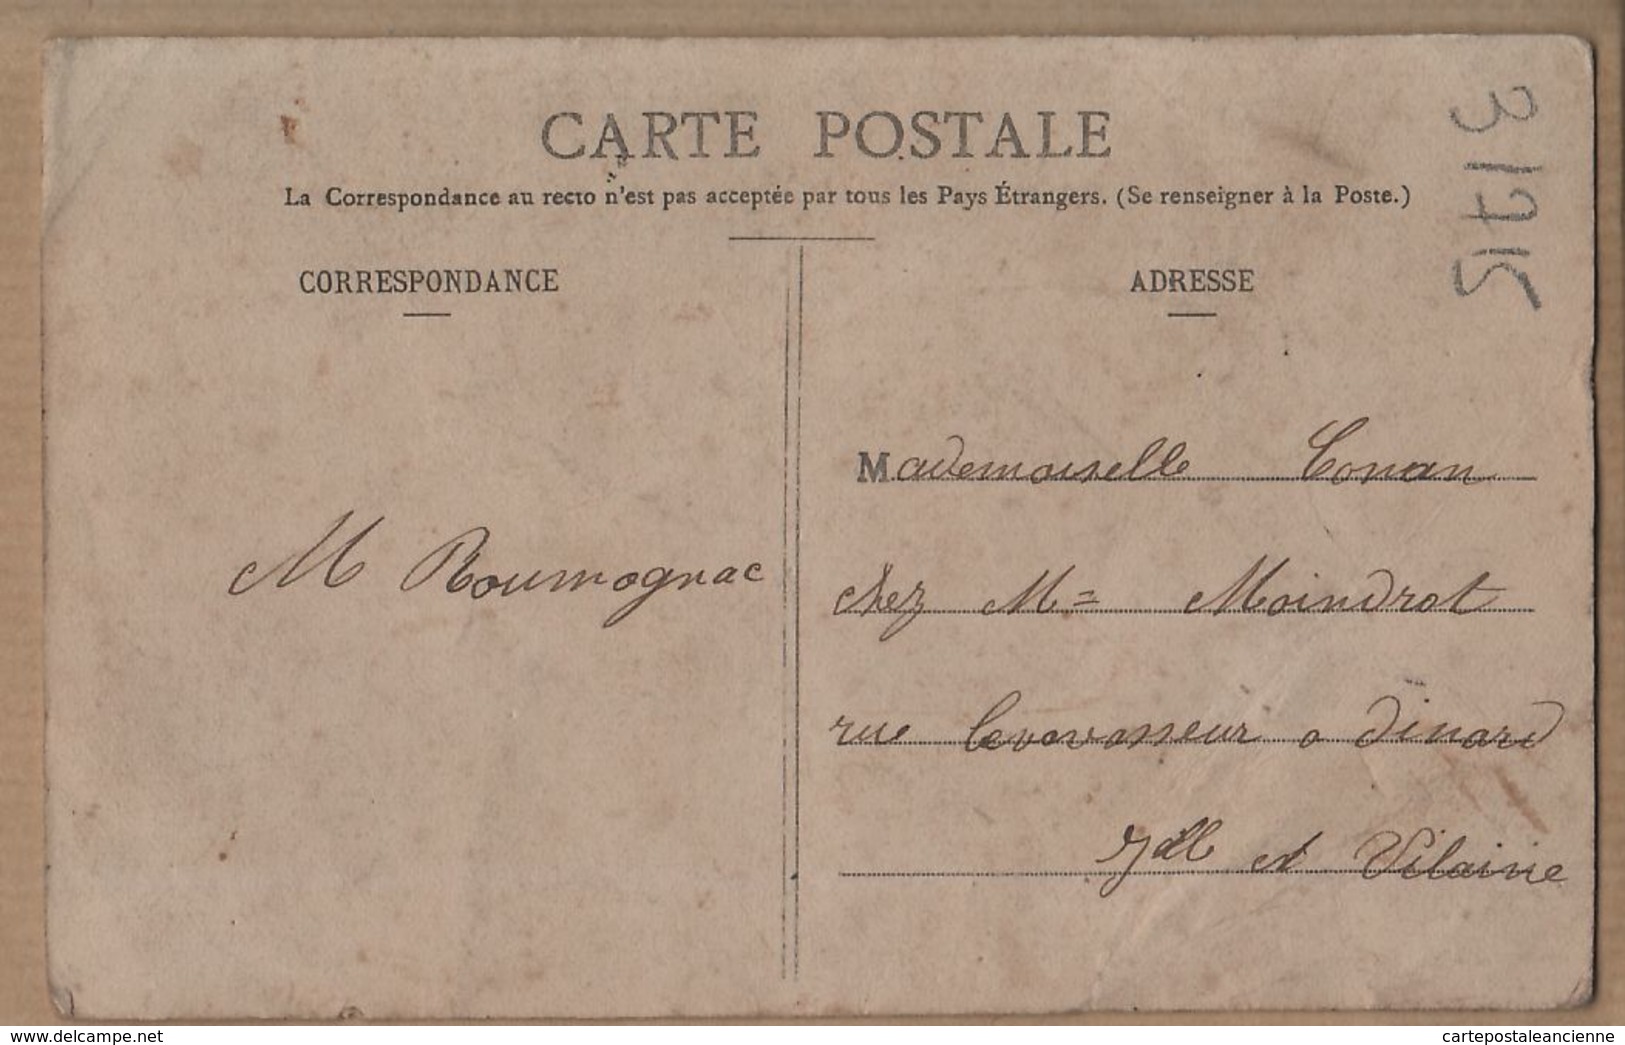 CARTE POSTALE
La Correspondance au recto n'est pas acceptée par tous les Pays Étrangers. (Se renseigner à la Poste.)
CORRESPONDANCE
ADRESSE
M Roumognac
Mademoiselle Conan
chez M= Moindrot
rue Levavasseur a Dinard
et Vilaine
www.delcampe.net
cartepostaleancienne